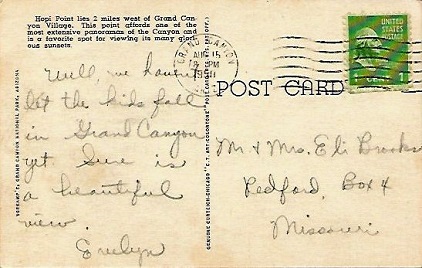 Hopi Point lies 2 miles west of Grand Can-
yon Village. This point affords one of the
most extensive panoramas of the Canyon and
is a favorite spot for viewing its many glori-
ous sunsets.
GRAND CANYON
AUG 15
PM
1941
ARIZ.
UNITED
STATES
POSTAGE
1
POST CARD
Well, we haven't
let the kids fall
in Grand Canyon
yet. Sure is
a beautiful
view.
Evelyn
Mr & Mrs. Eli Brooks
Redford, Box 4
Missouri
VERKAMP'S, GRAND CANYON NATIONAL PARK, ARIZONA
GENUINE CURTEICH-CHICAGO "C.T. ART-COLORTONE" POST CARD